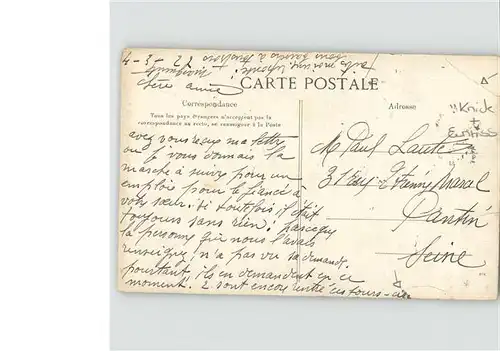 4-3-22
Chère amie
CARTE POSTALE
Correspondance
Tous les pays étrangers n'acceptent pas la
correspondance au recto, se renseigner à la Poste
Adresse
avez vous reçu ma lettre
ou je vous donnais la
marche à suivre pour un
emploi pour le fiancé à
votre sœur. Si toutefois il était
toujours sans rien; parceque
la personne que nous l'avais
renseignés, n'a pas vu sa demande.
pourtant, ils en demandent en ce
moment. 2 sont encore entré ces jours-ci
M Paul
3 Rue Etienne Marcel
Pantin
Seine